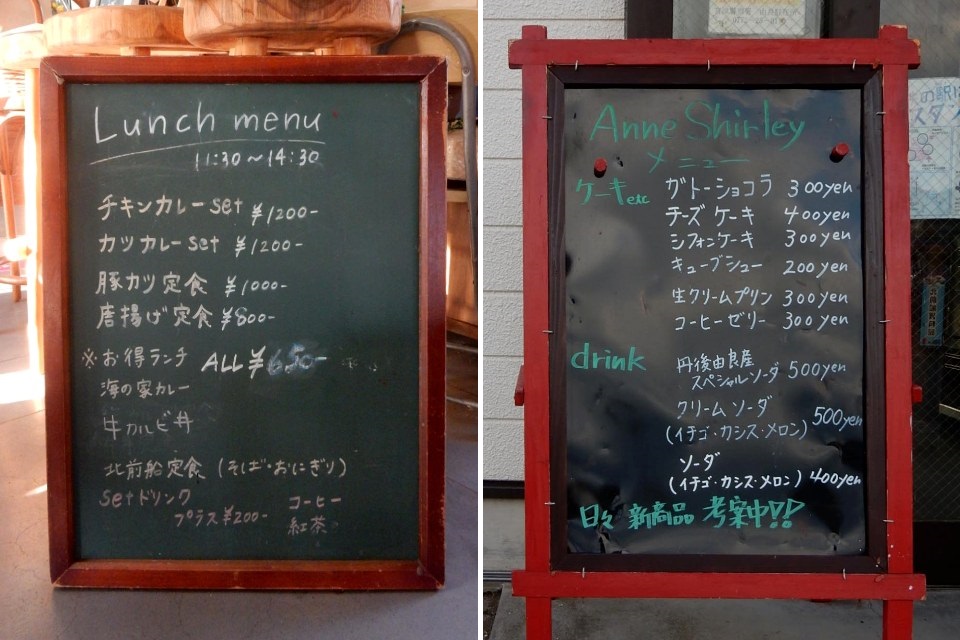 Lunch menu
11:30～14:30
チキンカレーset ¥1200-
カツカレーset ¥1200-
豚カツ定食 ¥1000-
唐揚げ定食 ¥800-
※お得ランチ ALL¥650-
海の家カレー
牛カルビ丼
北前船定食 (そば・おにぎり)
setドリンク
プラス¥200-
コーヒー
紅茶
Anne Shirley
メニュー
ケーキetc
ガトーショコラ 300yen
チーズケーキ 400yen
シフォンケーキ 300yen
キューブシュー 200yen
生クリームプリン 300yen
コーヒーゼリー 300yen
drink
丹後由良産
スペシャルソーダ 500yen
クリームソーダ
(イチゴ・カシス・メロン) 500yen
ソーダ
(イチゴ・カシス・メロン) 400yen
日々 新商品 考案中!!